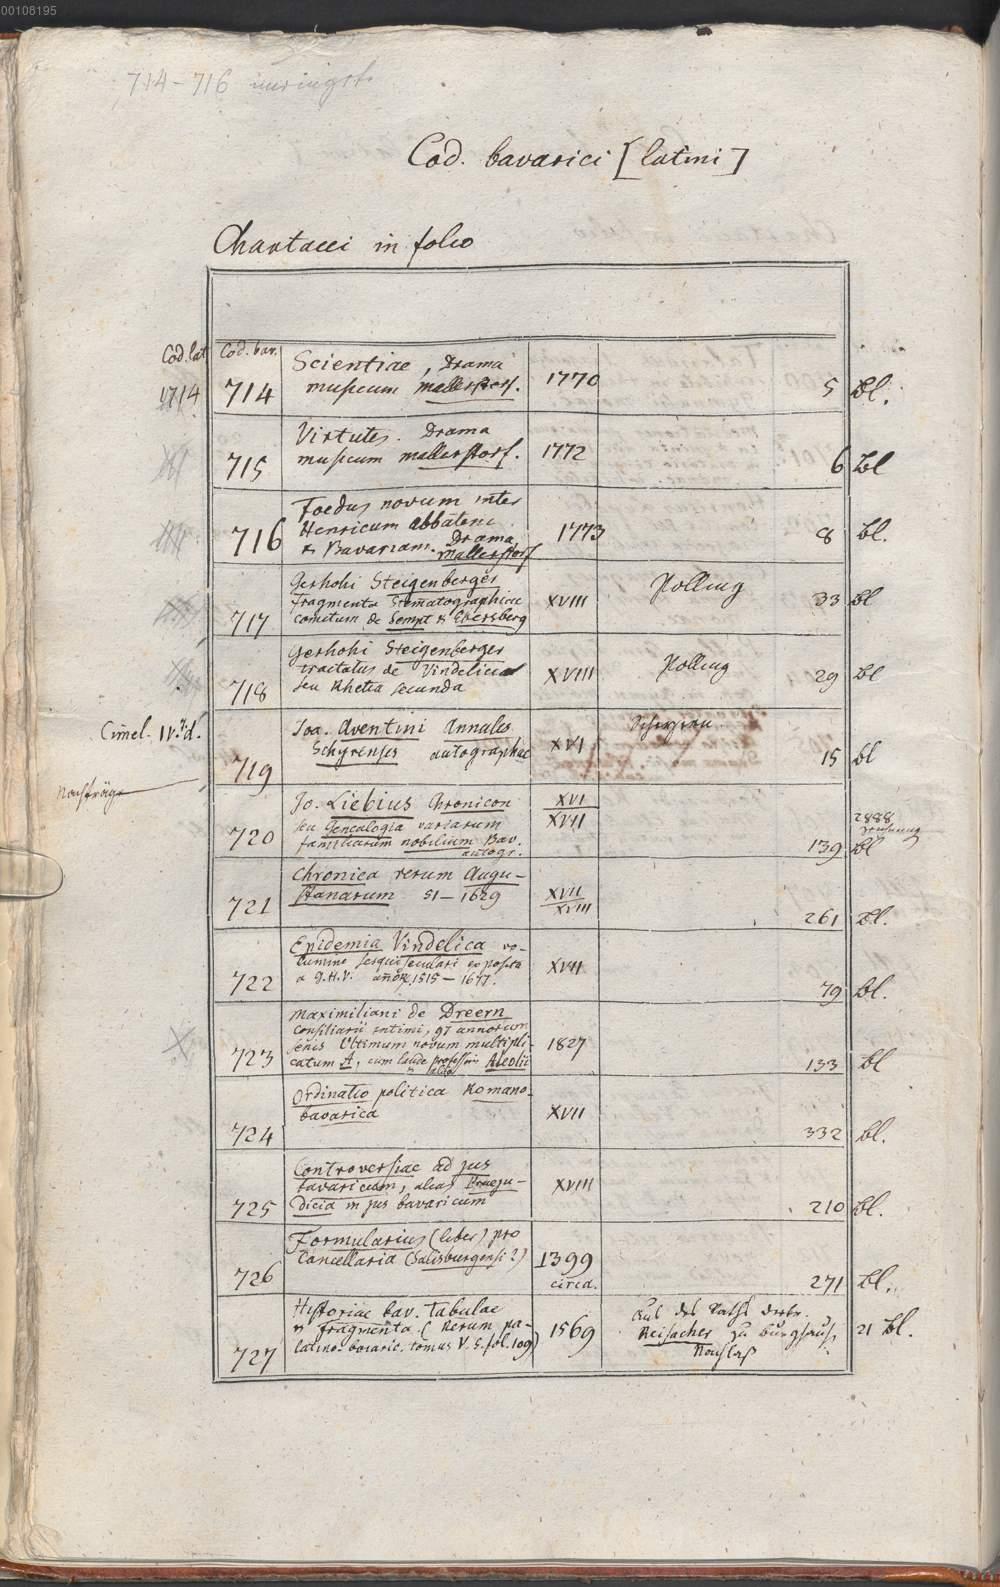 00108195
714-716
Cod. bavarici [latini]
Chartacei in folio
Cod. lat. Cod. bav.
1714 714 Scientiae, Drama
musicum Mallerstorf. 1770 5 Bl.
715 Virtutes. Drama
musicum Mallerstorf. 1772 6 Bl
716 Foedus novum inter
Henricum abbatem
& Bavariam. Drama, 1773 8 Bl.
Mallerstorf
717 Gerhohi Steigenberger
fragmenta Stematographiae XVIII Polling 33 Bl
comitum de Sempt & Ebersberg
718 Gerhohi Steigenberger
tractatus de Vindelicia XVIII Polling 29 Bl
seu Rhetia secunda
Cimel. IV. 3. d. 719 Joa. Aventini Annales Scheyern
Schyrenses autographae XVI 15 bl
Nachträge
720 Jo. Liebius Chronicon XVI
seu Genealogia variarum XVII 2888
familiarum nobilium Bav. 139 Bl
autogr.
721 Chronica rerum Augu-
stanarum 51-1629 XVII
XVIII 261 Bl.
722 Epidemia Vindelica vo-
lumine sesquiseculari exposita XVII
a G.H.V. 1515-1677. 79 Bl.
723 Maximiliani de Dreern
Consiliarii intimi, 97 annorum
senis Ultimum novum multipli- 1827
catum A, cum laude 133 Bl
724 Ordinatio politica Romano-
bavarica XVII 332 Bl.
725 Controversiae ad jus
bavaricum, alias Praeju- XVIII
dicia in jus bavaricum 210 Bl.
726 Formularius (liber) pro
Cancellaria (Salisburgensi?) 1399
circa. 271 Bl.
727 Historiae bav. tabulae Aus des Raths
& fragmenta (Rerum pa- 1569 Reisacher zu Burghaus. 21 Bl.
latino-boiaric. tomus V. S. fol. 109) Nachlaß